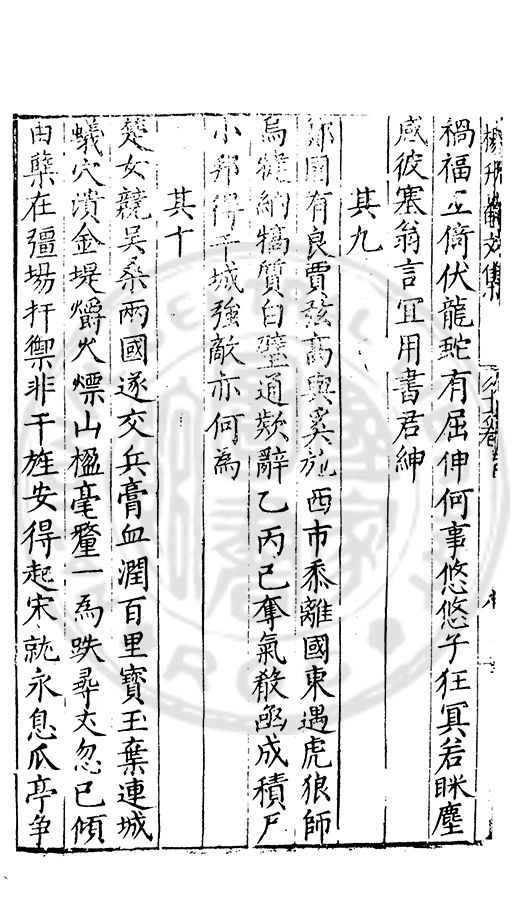 禍福互倚伏龍蛇有屈伸何事悠悠子狂冥若眯塵
感彼塞翁言宜用書君紳
其九
鄭國有良賈弦高與奚施西市黍離國東遇虎狼師
烏犍納犒質白璧通欵辭乙丙已奪氣殽凾成積尸
小邦得干城強敵亦何為
其十
楚女競吳桑兩國遂交兵膏血潤百里寶玉棄連城
蟻穴潰金堤爝火熛山楹毫釐一為跌尋丈忽已傾
由櫱在彊埸扞禦非干旌安得起宋就永息瓜亭争